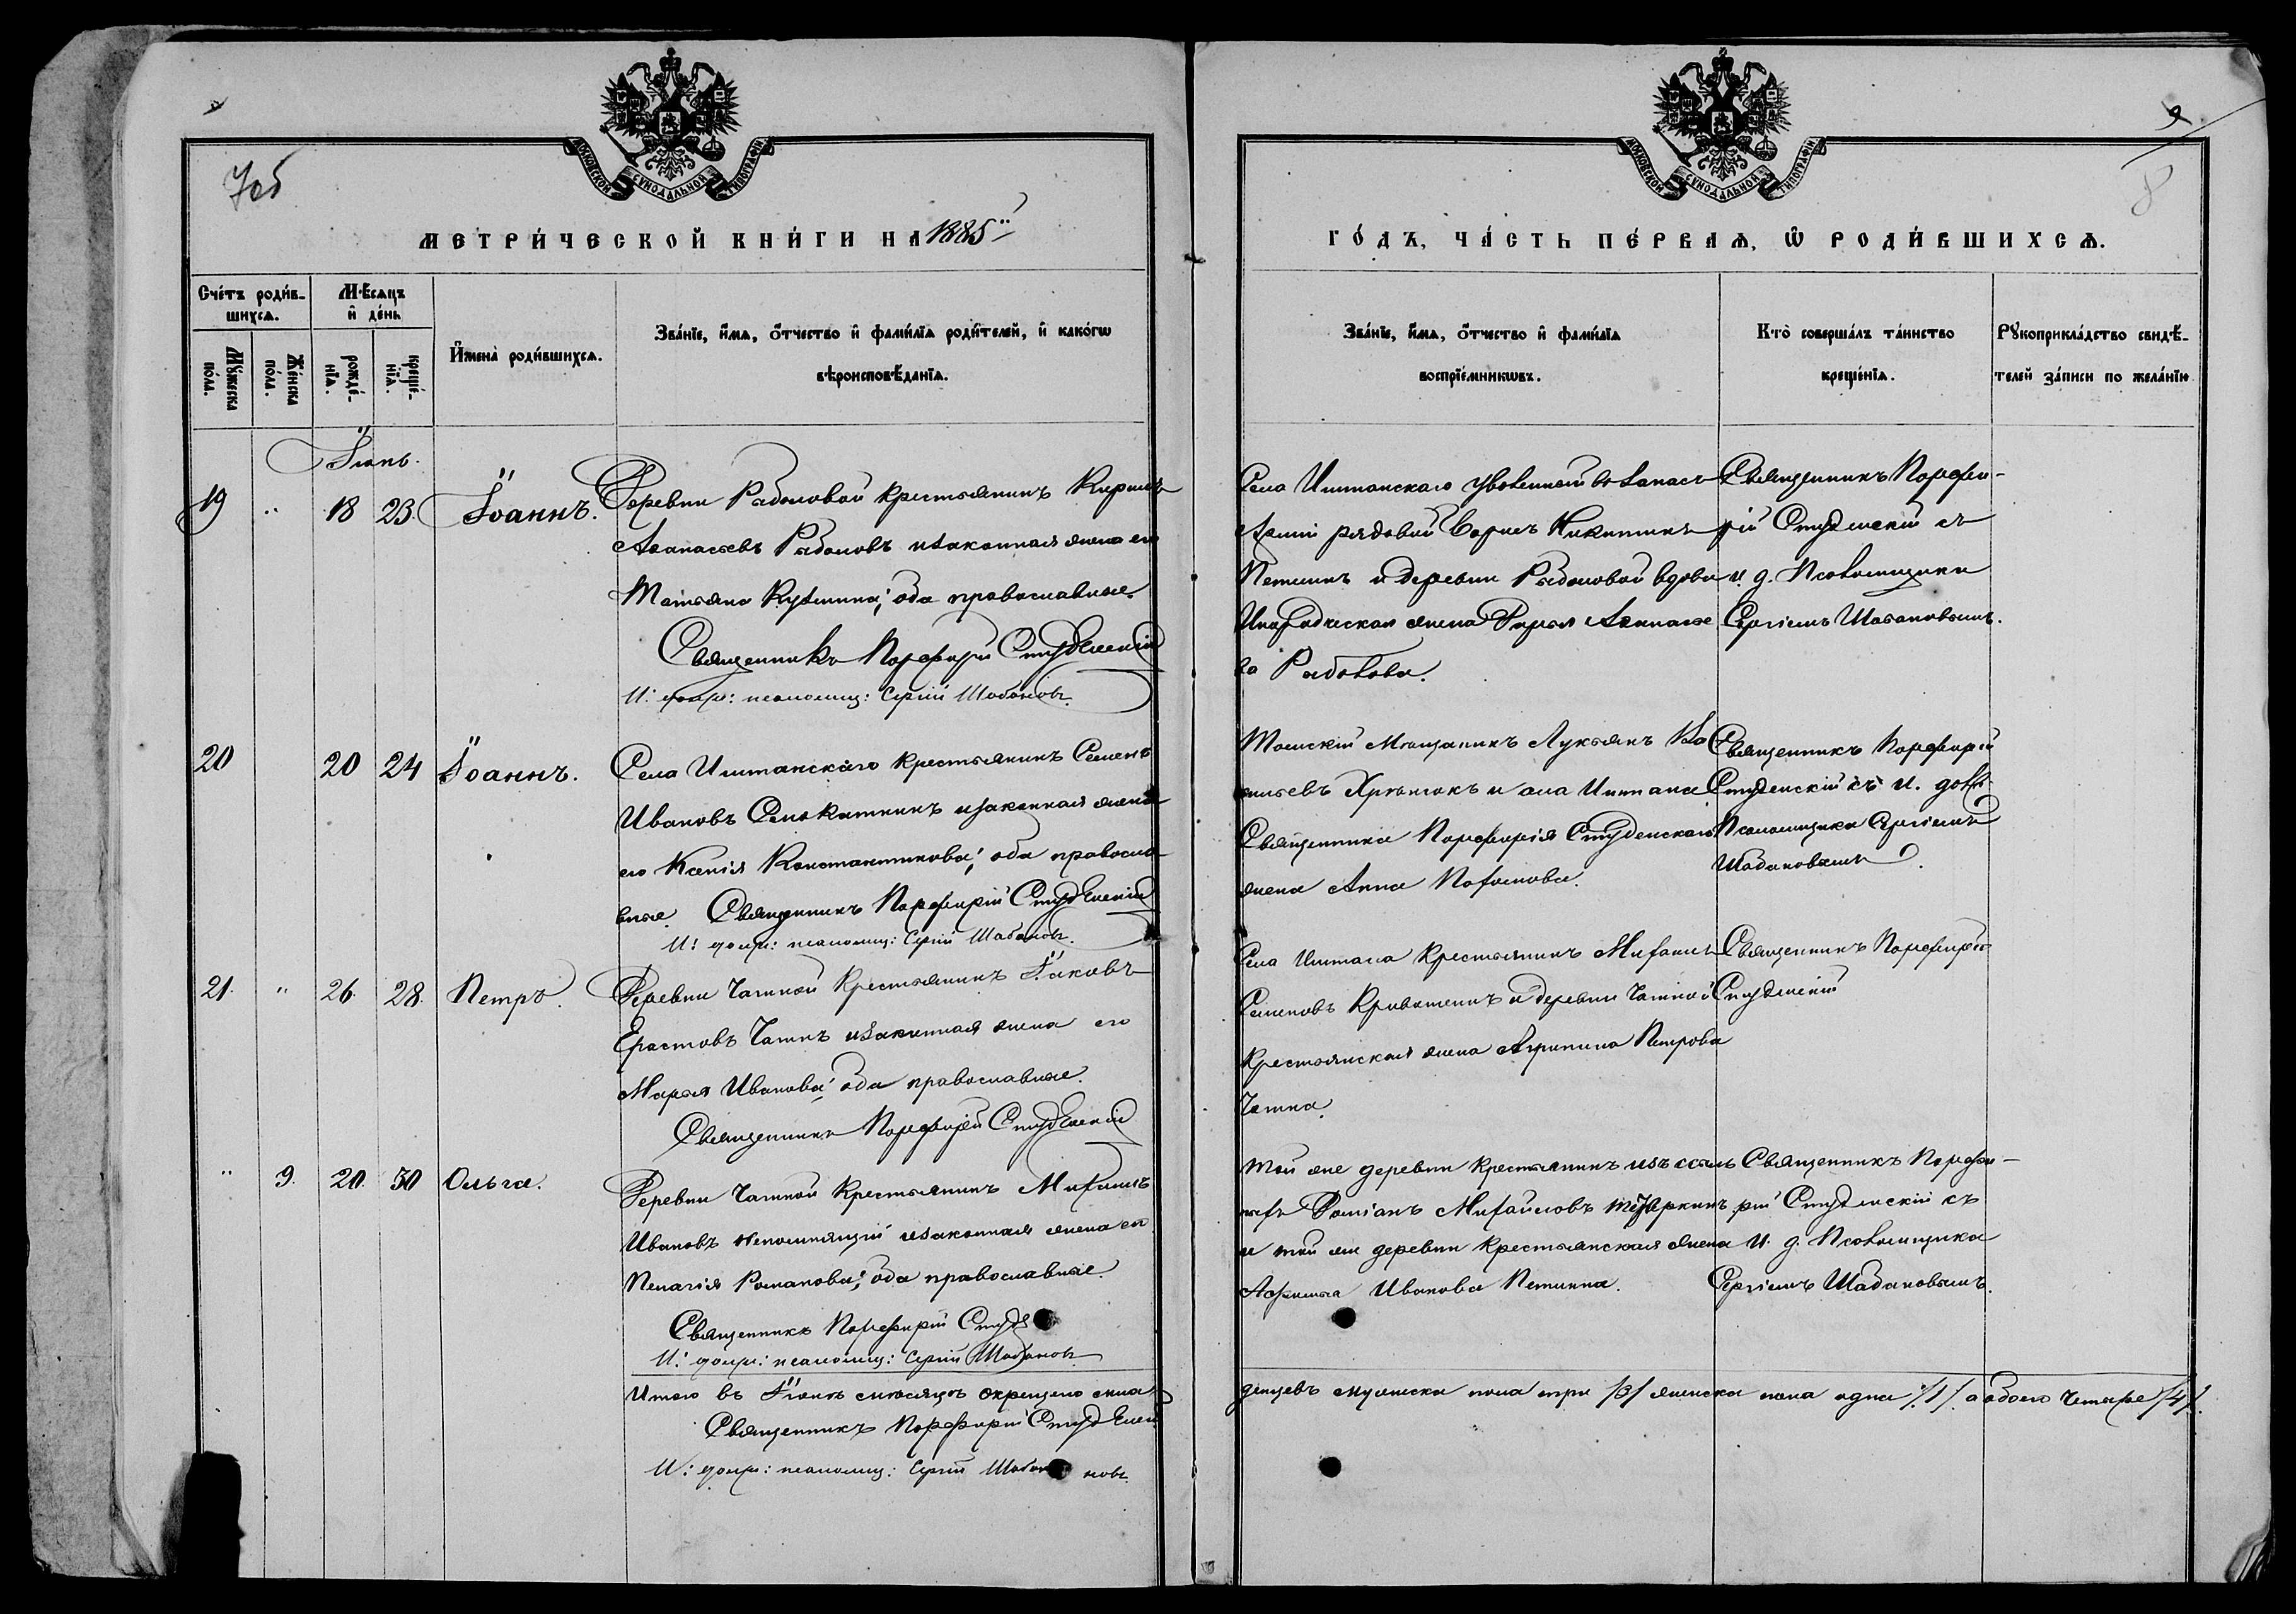 7об
9
8
МОСКОВСКОЙ СѴНОДАЛЬНОЙ ТИПОГРАФІИ
МОСКОВСКОЙ СѴНОДАЛЬНОЙ ТИПОГРАФІИ
МЕТРИ́ЧЕСКОЙ КНИ́ГИ НА 1885й
ГО́ДЪ, ЧА́СТЬ ПЕ́РВАѦ, Ѡ РОДИ́ВШИХСѦ.
Сче́тъ роди́в-
шихсѧ.
Мꙋ́жеска
по́ла.
Же́нска
по́ла.
Мѣ́сѧцъ
и де́нь
рожде́-
нїѧ.
креще́-
нїѧ.
Имена̀ роди́вшихсѧ.
Зва́нїе, и́мѧ, ѻ́тчество и фами́лїѧ роди́телей, и како́гѡ
вѣроисповѣ́данїѧ.
Зва́нїе, и́мѧ, ѻ́тчество и фами́лїѧ
воспрїе́мникѡвъ.
Кто̀ соверша́лъ та́инство
креще́нїѧ.
Рꙋкоприкла́дство свидѣ́-
телей за́писи по жела́нїю
Іюнь.
19 " 18 23. Іоаннъ.
Деревни Рыболовой крестьянинъ Кирилъ
Аѳанасьевъ Рыболовъ и законная жена его
Матьяна Кузьмина; оба православные.
Священникъ Порфирій Студенскій
И: долж: псаломщ: Сергій Шабановъ.
Села Иштанскаго уволенной въ запасъ
Арміи рядовой Борисъ Никитинъ
Петлинъ и деревни Рыболовой вдова
Инородческая жена Дарья Аѳанасье
ва Рыболова.
Священникъ Порфи-
рій Студенскій съ
и. д. Псаломщика
Сергіемъ Шабановымъ.
20 20 24 Іоаннъ.
Села Иштанскаго крестьянинъ Семенъ
Ивановъ Сенокитнинъ и законная жена
его Ксенія Константинова; оба правосла-
вные. Священникъ Порфирій Студенскій
И: долж: псаломщ: Сергій Шабановъ.
Томскій Мѣщанинъ Лукьянъ Ва
сильевъ и села Иштана
Священника Порфирія Студенскаго
жена Анна
Священникъ Порфирій
Студенскій съ и. долж.
Псаломщика Сергіемъ
Шабановымъ.
21. " 26. 28. Петръ.
Деревни Чатной Крестьянинъ Іаковъ
Ерастовъ Чатнъ и законная жена его
Марья Иванова; оба православные.
Священникъ Порфирій Студенскій
Села Иштана Крестьянинъ Михаилъ
Семеновъ Кривошеинъ и деревни Чатной
Крестьянская жена Агрипина Петрова
Чатна.
Священникъ Порфирій
Студенскій
" 9. 20. 30 Ольга.
Деревни Чатной Крестьянинъ Михаилъ
Ивановъ Непомнящій и законная жена его
Пелагія Романова; оба православные.
Священникъ Порфирій Студе
И: долж: псаломщ: Сергій Шабановъ
Той же деревни крестьянинъ изъ ссыль
ныхъ Даміанъ Михайловъ
и той же деревни Крестьянская жена
Аѳимья Иванова Петлина.
Священникъ Порфи-
рій Студенскій съ
и. д. Псаломщика
Сергіемъ Шабановымъ.
Итого въ Іюнѣ мѣсяцѣ окрещено мла-
денцевъ мужеска пола три /3/ женска пола одна /1/. а обоего четыре /4/.
Священникъ Порфирій Студенскій
И: долж: псаломщ: Сергій Шабановъ.